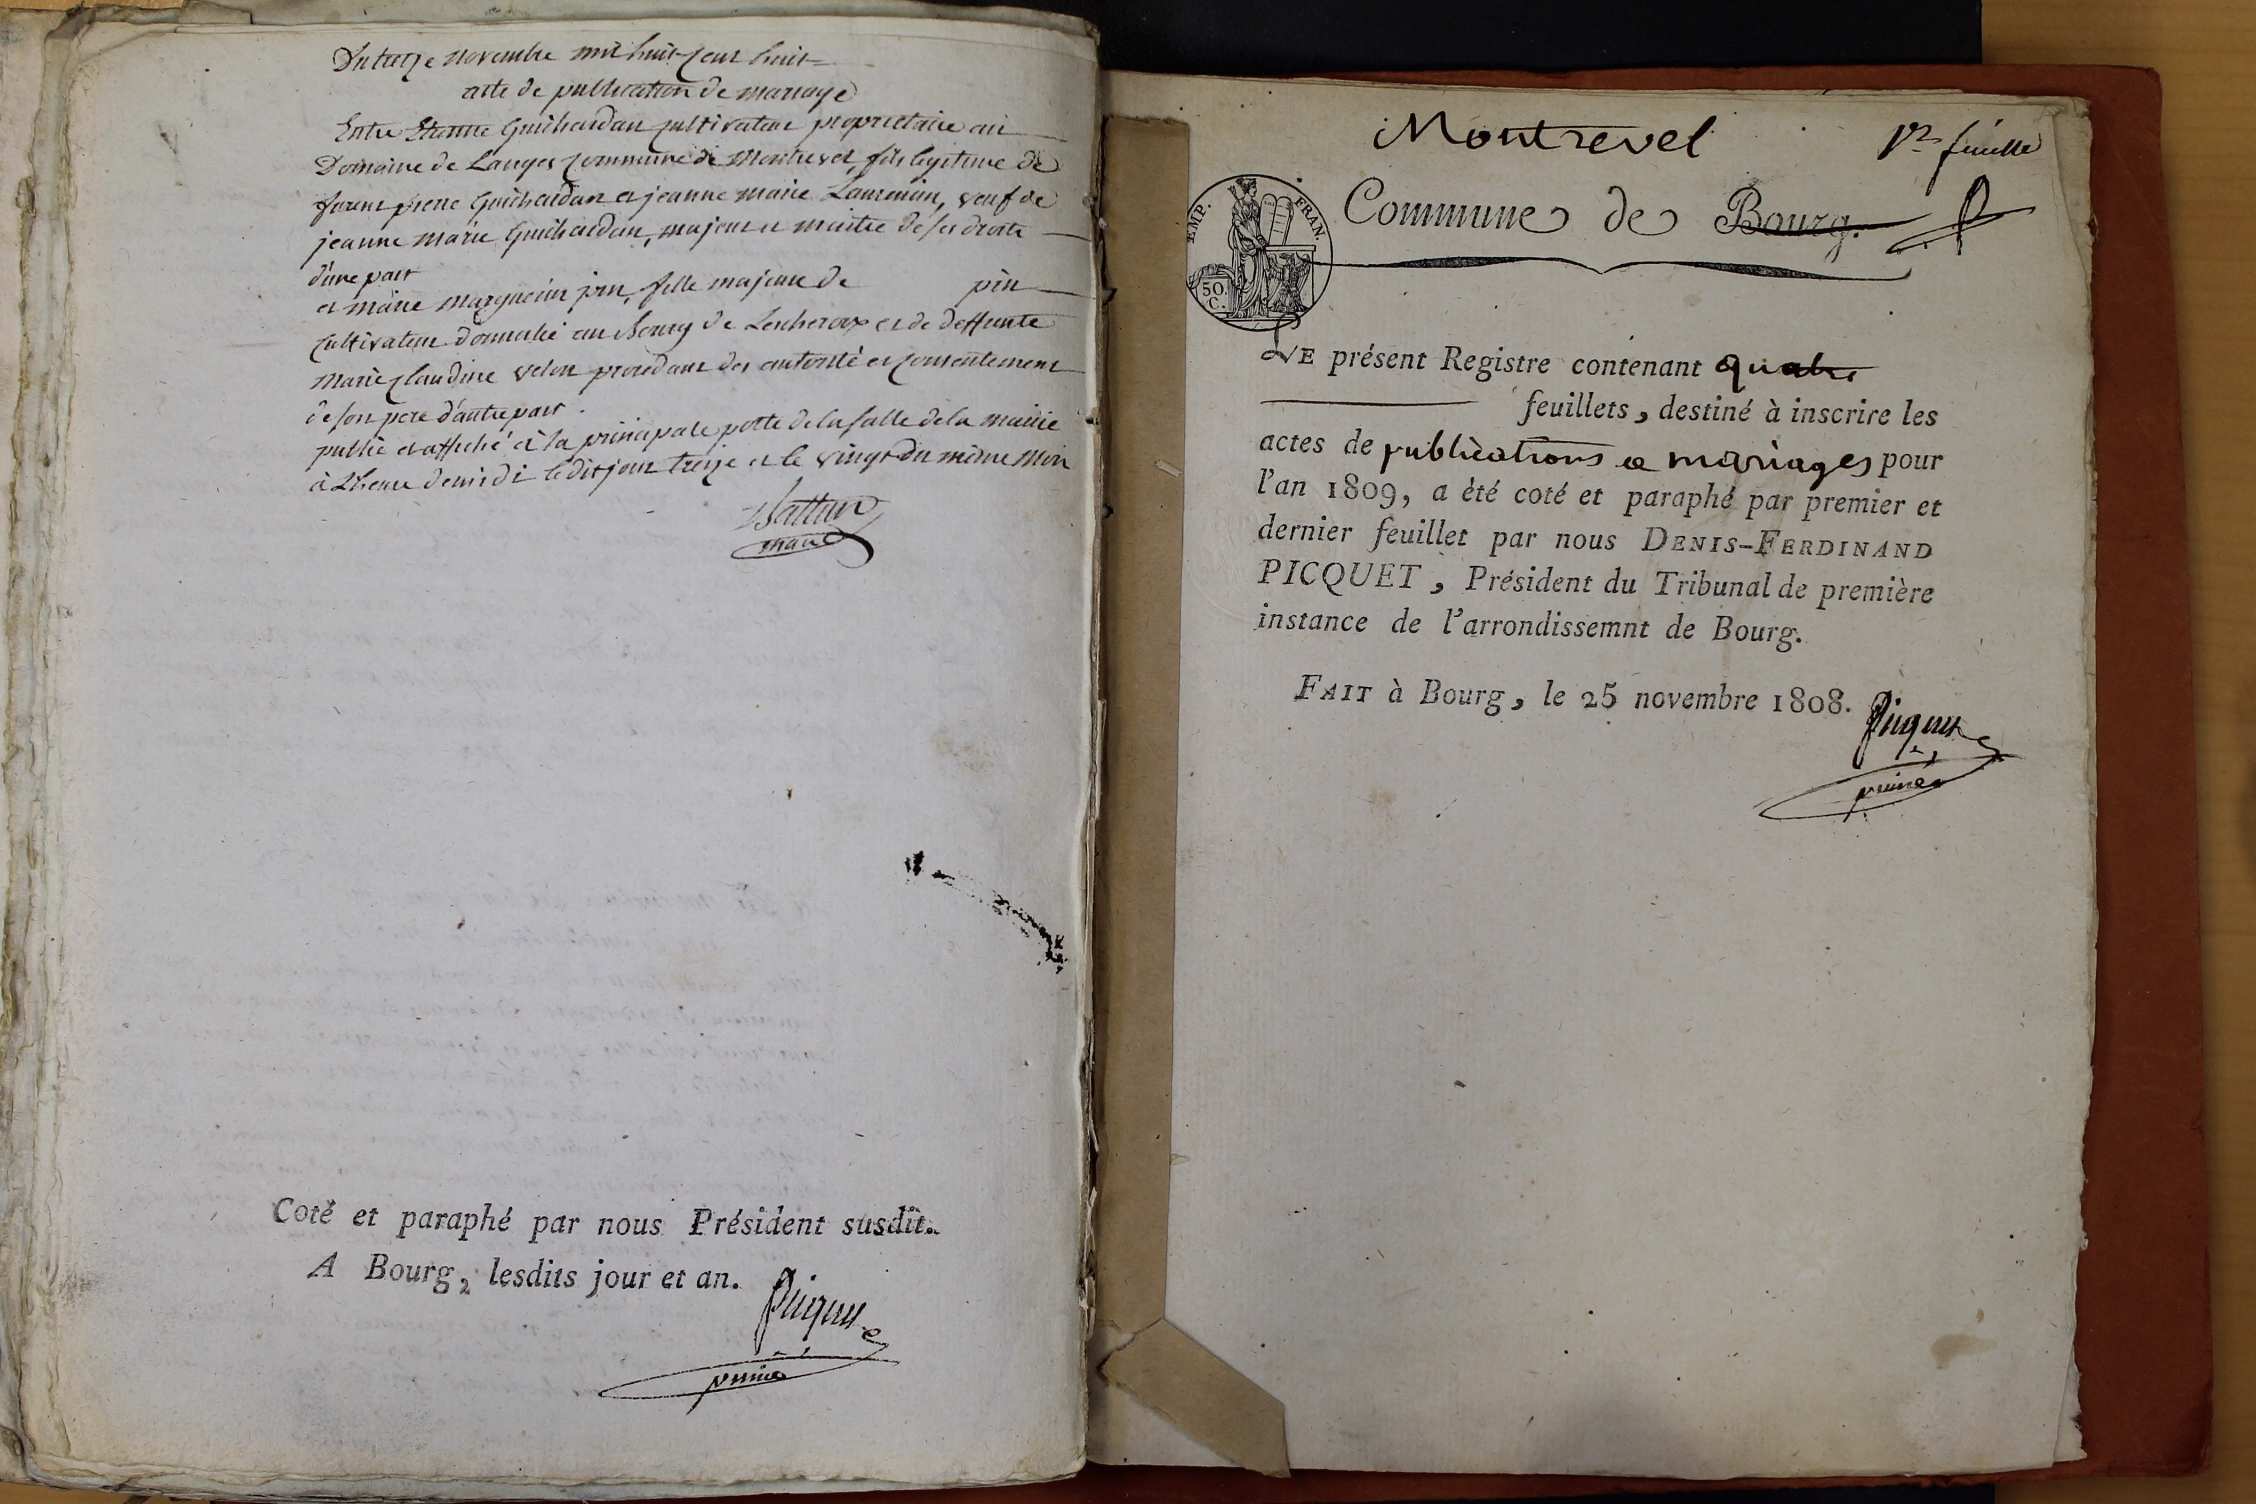 Du treize novembre mil huit cent huit
acte de publication de mariage
Entre Etienne Guichardan cultivateur proprietaire au
Domaine de Langes commune de Montrevel, fils legitime de
furent pierre Guichardan et jeanne marie Laurencin, veuf de
jeanne marie Guichardan, majeur et maitre de ses droits
d'une part
et marie marguerite pin, fille majeure de pin
cultivateur domicilié au Bourg de Lescheroux et de deffunte
Marie claudine velon procedant des autorité et consentement
de son pere d'autre part.
publié et affiché à la principale porte de la salle de la mairie
à Lheure de midi ledit jour treize et le vingt du même mois
maire
Coté et paraphé par nous Président susdit.
A Bourg, lesdits jour et an.
Picquet
Montrevel
1re feuille
Commune de Bourg.
EMP. FRAN.
50 C.
LE présent Registre contenant quatre
feuillets, destiné à inscrire les
actes de publications et mariages pour
l'an 1809, a été coté et paraphé par premier et
dernier feuillet par nous DENIS-FERDINAND
PICQUET, Président du Tribunal de première
instance de l'arrondissemnt de Bourg.
FAIT à Bourg, le 25 novembre 1808.
Picquet